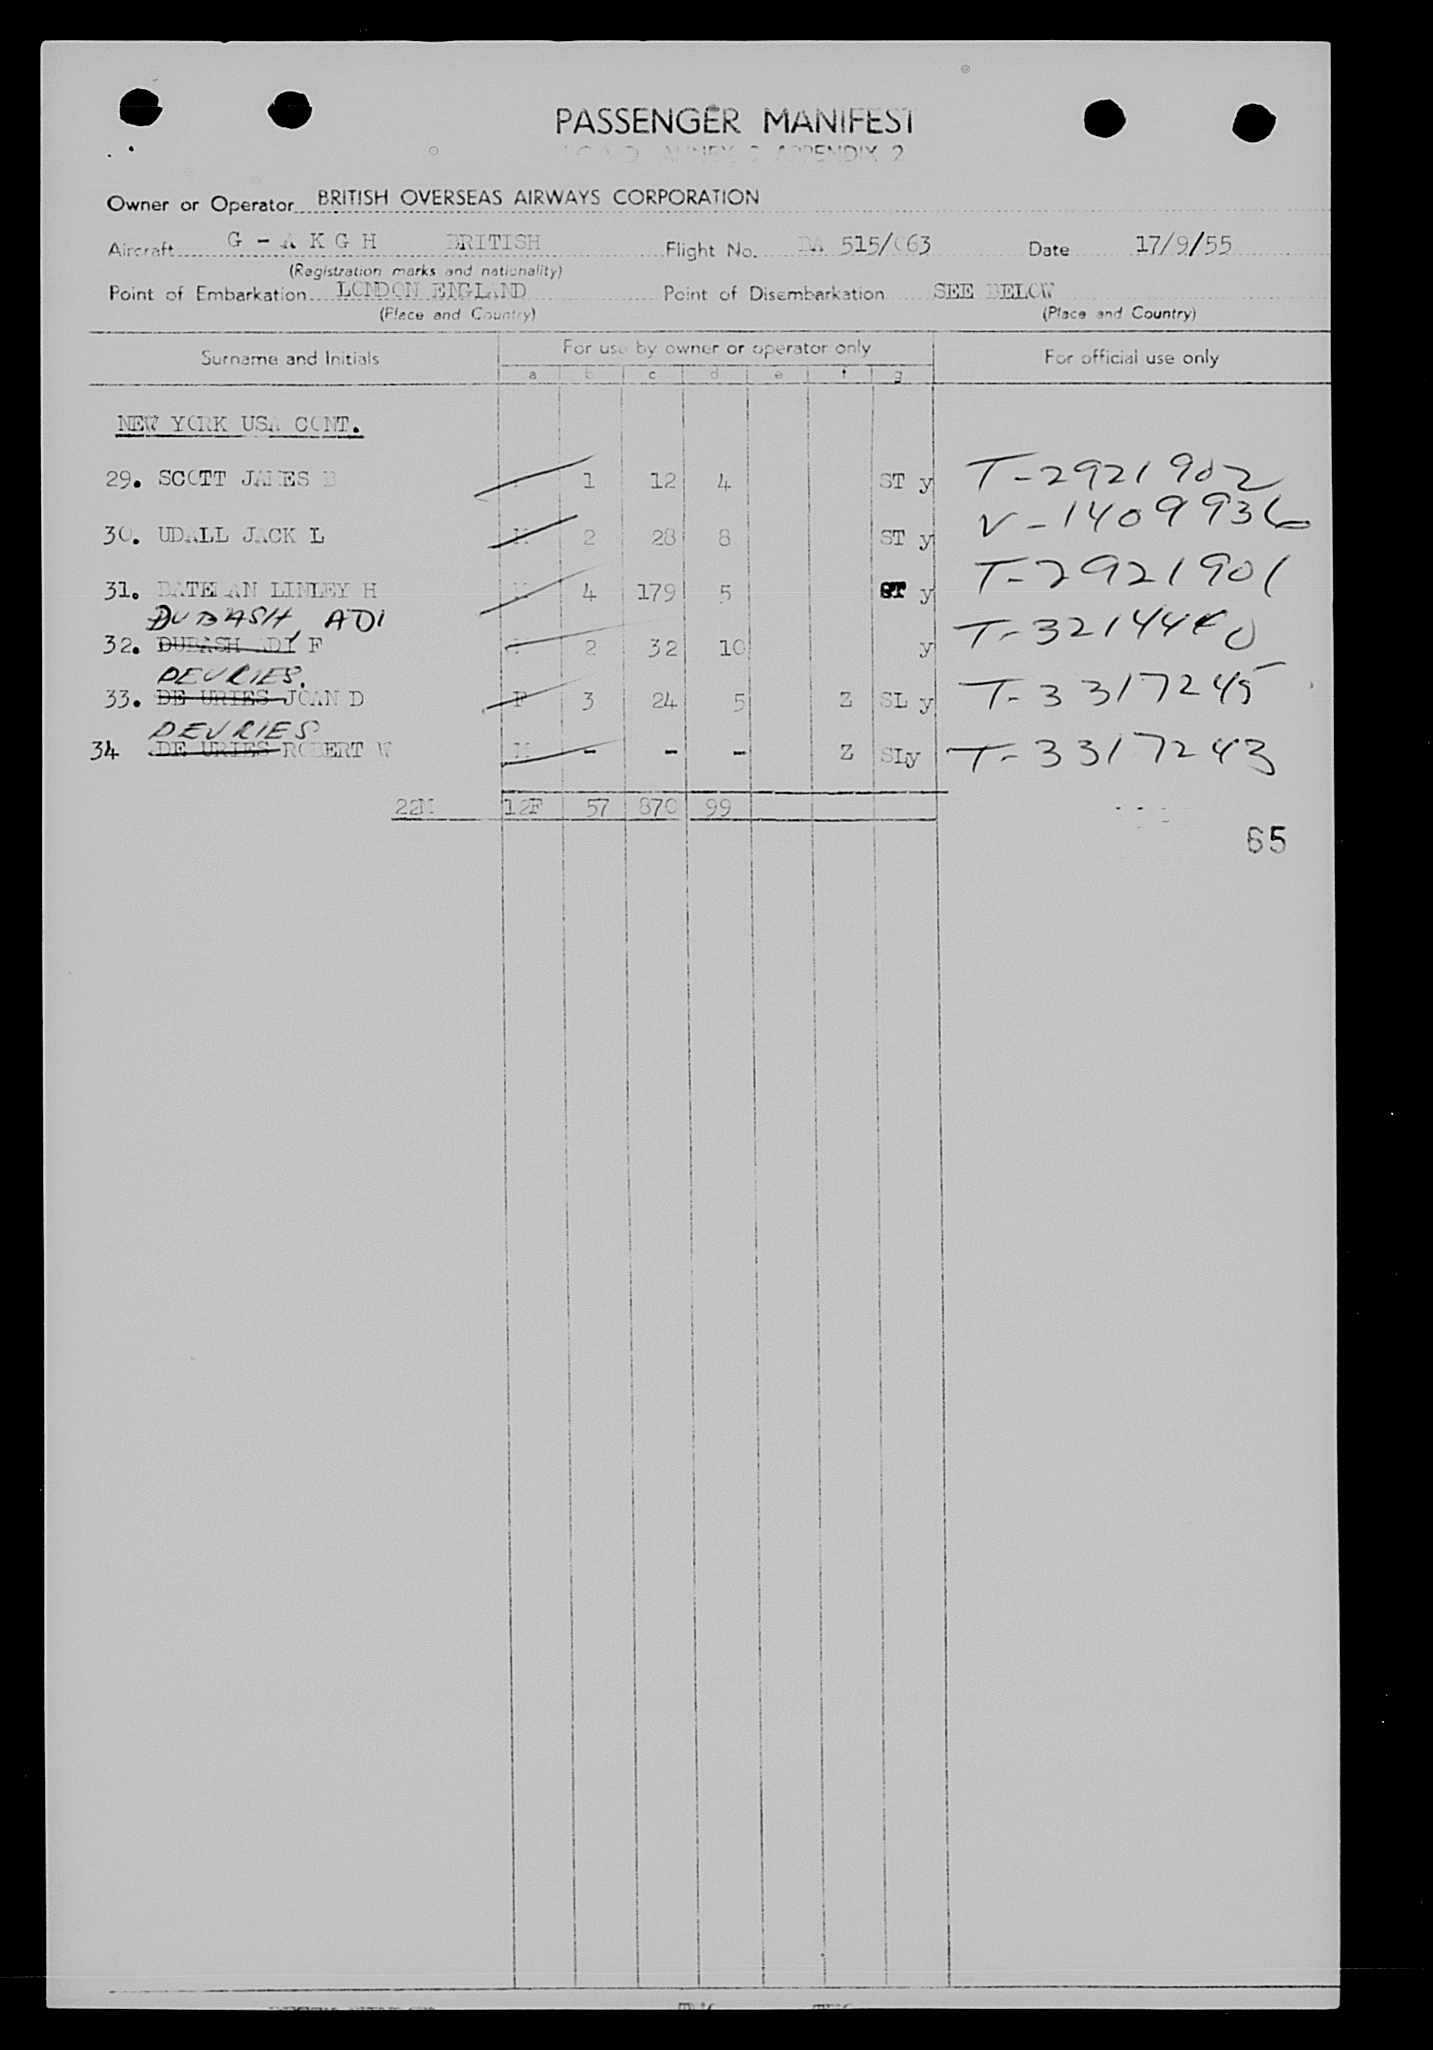 PASSENGER MANIFEST
I.C.A.O. ANNEX 9 APPENDIX 2
Owner or Operator BRITISH OVERSEAS AIRWAYS CORPORATION
Aircraft G - A K G H BRITISH Flight No. BA 515/063 Date 17/9/55
(Registration marks and nationality)
Point of Embarkation LONDON ENGLAND Point of Disembarkation SEE BELOW
(Place and Country) (Place and Country)
Surname and Initials For use by owner or operator only For official use only
a b c d e f g
NEW YORK USA CONT.
29. SCOTT JAMES B 1 12 4 ST y T-2921902
30. UDALL JACK L M 2 28 8 ST y V-1409936
31. LINLEY H M 4 179 5 ST y T-2921901
DUBASH, ADI
32. DUBASH ADI F 2 32 10 y T-3214440
DEVRIES.
33. DE URIES JOAN D F 3 24 5 Z SL y T-3317245
DEVRIES
34 DE URIES ROBERT W M - - - Z SLy T-3317243
22M 12F 57 870 99
65